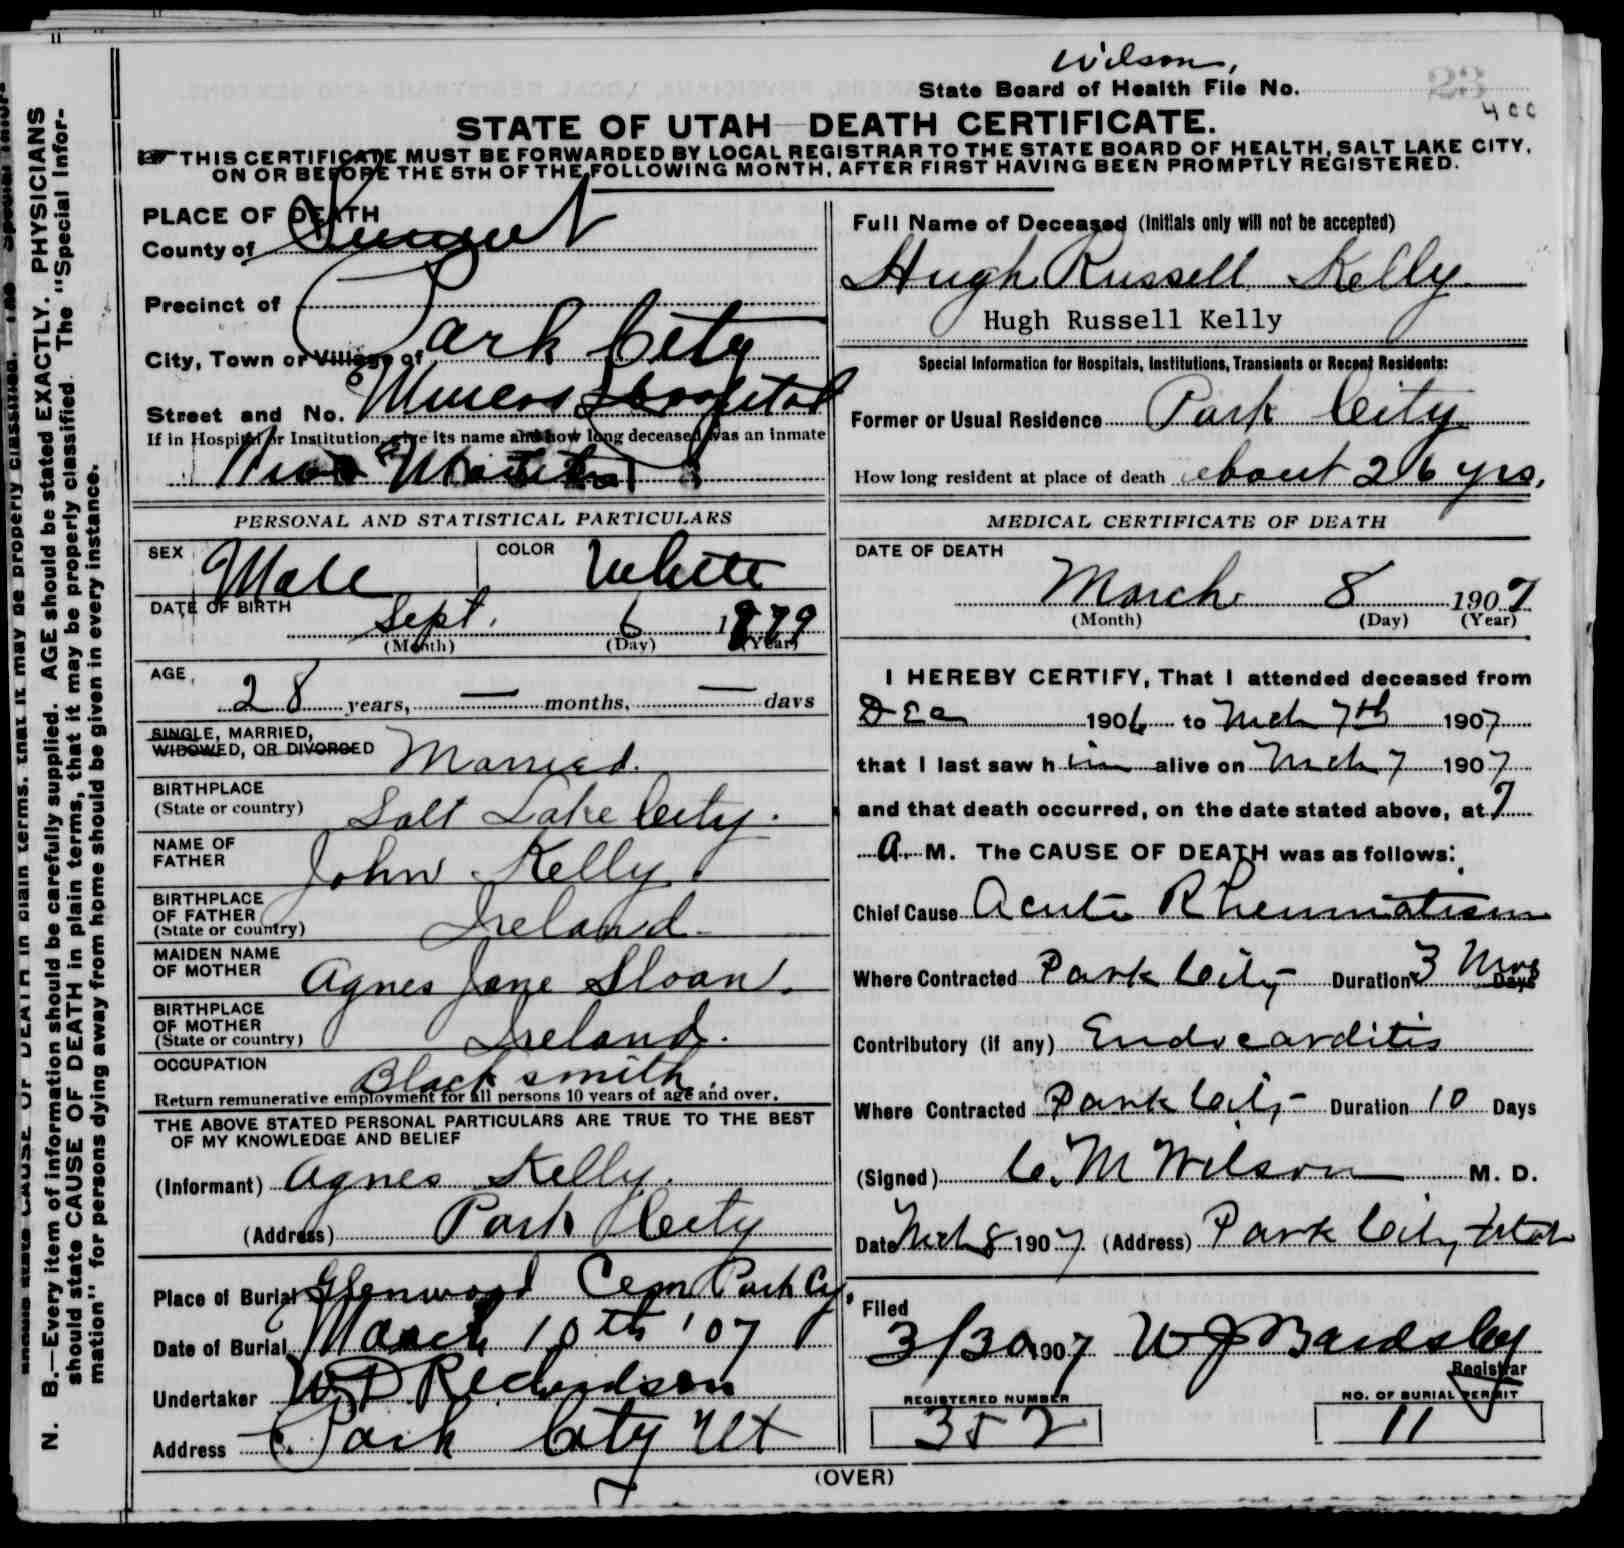 Wilson,
State Board of Health File No. 23
400
STATE OF UTAH DEATH CERTIFICATE.
THIS CERTIFICATE MUST BE FORWARDED BY LOCAL REGISTRAR TO THE STATE BOARD OF HEALTH, SALT LAKE CITY,
ON OR BEFORE THE 5TH OF THE FOLLOWING MONTH, AFTER FIRST HAVING BEEN PROMPTLY REGISTERED.
PLACE OF DEATH
County of Summit
Precinct of
City, Town or Village of Park City
Street and No. Miners Hospital
If in Hospital or Institution, give its name and how long deceased was an inmate
PERSONAL AND STATISTICAL PARTICULARS
SEX Male COLOR White
DATE OF BIRTH Sept. 6 1879
(Month) (Day) (Year)
AGE, 28 years, — months, — days
SINGLE, MARRIED,
WIDOWED, OR DIVORCED Married.
BIRTHPLACE
(State or country) Salt Lake City.
NAME OF
FATHER John Kelly
BIRTHPLACE
OF FATHER
(State or country) Ireland
MAIDEN NAME
OF MOTHER Agnes Jane Sloan.
BIRTHPLACE
OF MOTHER
(State or country) Ireland.
OCCUPATION Blacksmith.
Return remunerative employment for all persons 10 years of age and over.
THE ABOVE STATED PERSONAL PARTICULARS ARE TRUE TO THE BEST
OF MY KNOWLEDGE AND BELIEF
(Informant) Agnes Kelly.
(Address) Park City
Place of Burial Glenwood Cem Park Cy.
Date of Burial March 10th '07
Undertaker W D Richardson
Address Park City Ut
Full Name of Deceased (Initials only will not be accepted)
Hugh Russell Kelly
Hugh Russell Kelly
Special Information for Hospitals, Institutions, Transients or Recent Residents:
Former or Usual Residence Park City
How long resident at place of death about 26 yrs.
MEDICAL CERTIFICATE OF DEATH
DATE OF DEATH
March 8 1907
(Month) (Day) (Year)
I HEREBY CERTIFY, That I attended deceased from
Dec 1906 to Mch 7th 1907
that I last saw him alive on Mch 7 1907
and that death occurred, on the date stated above, at 7
A. M. The CAUSE OF DEATH was as follows:
Chief Cause Acute Rheumatism
Where Contracted Park City Duration 3 Mos Days
Contributory (if any) Endocarditis
Where Contracted Park City Duration 10 Days
(Signed) C. M Wilson M. D.
Date Mch 8 1907 (Address) Park City Utah
Filed
3/30 1907 W J Bardsley
Registrar
REGISTERED NUMBER
352
NO. OF BURIAL PERMIT
11
(OVER)
N. B.—Every item of information should be carefully supplied. AGE should be stated EXACTLY. PHYSICIANS
should state CAUSE OF DEATH in plain terms, that it may be properly classified. The "Special Infor-
mation" for persons dying away from home should be given in every instance.